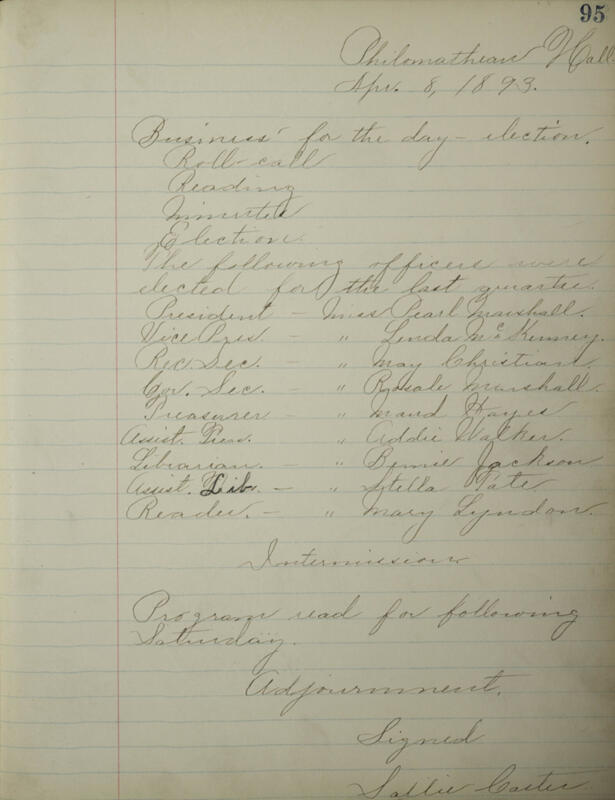 95
Philomathean Hall
Apr. 8, 1893.
Business for the day - election.
Roll-call
Reading
Minutes
Election.
The following officers were
elected for the last quarter.
President - Miss Pearl Marshall.
Vice Pres. - " Linda McKenney.
Rec. Sec. - " May Christian.
Cor. Sec. - " Rosale Marshall.
Treasurer - " Maud Hayes
Assist. Treas. " Addie Walker.
Librarian. - " Bennie Jackson
Assist. Lib. - " Stella Tate.
Reader. - " Mary Lyndon.
Intermission
Program read for following
Saturday.
Adjournment.
Signed
Sallie Carter